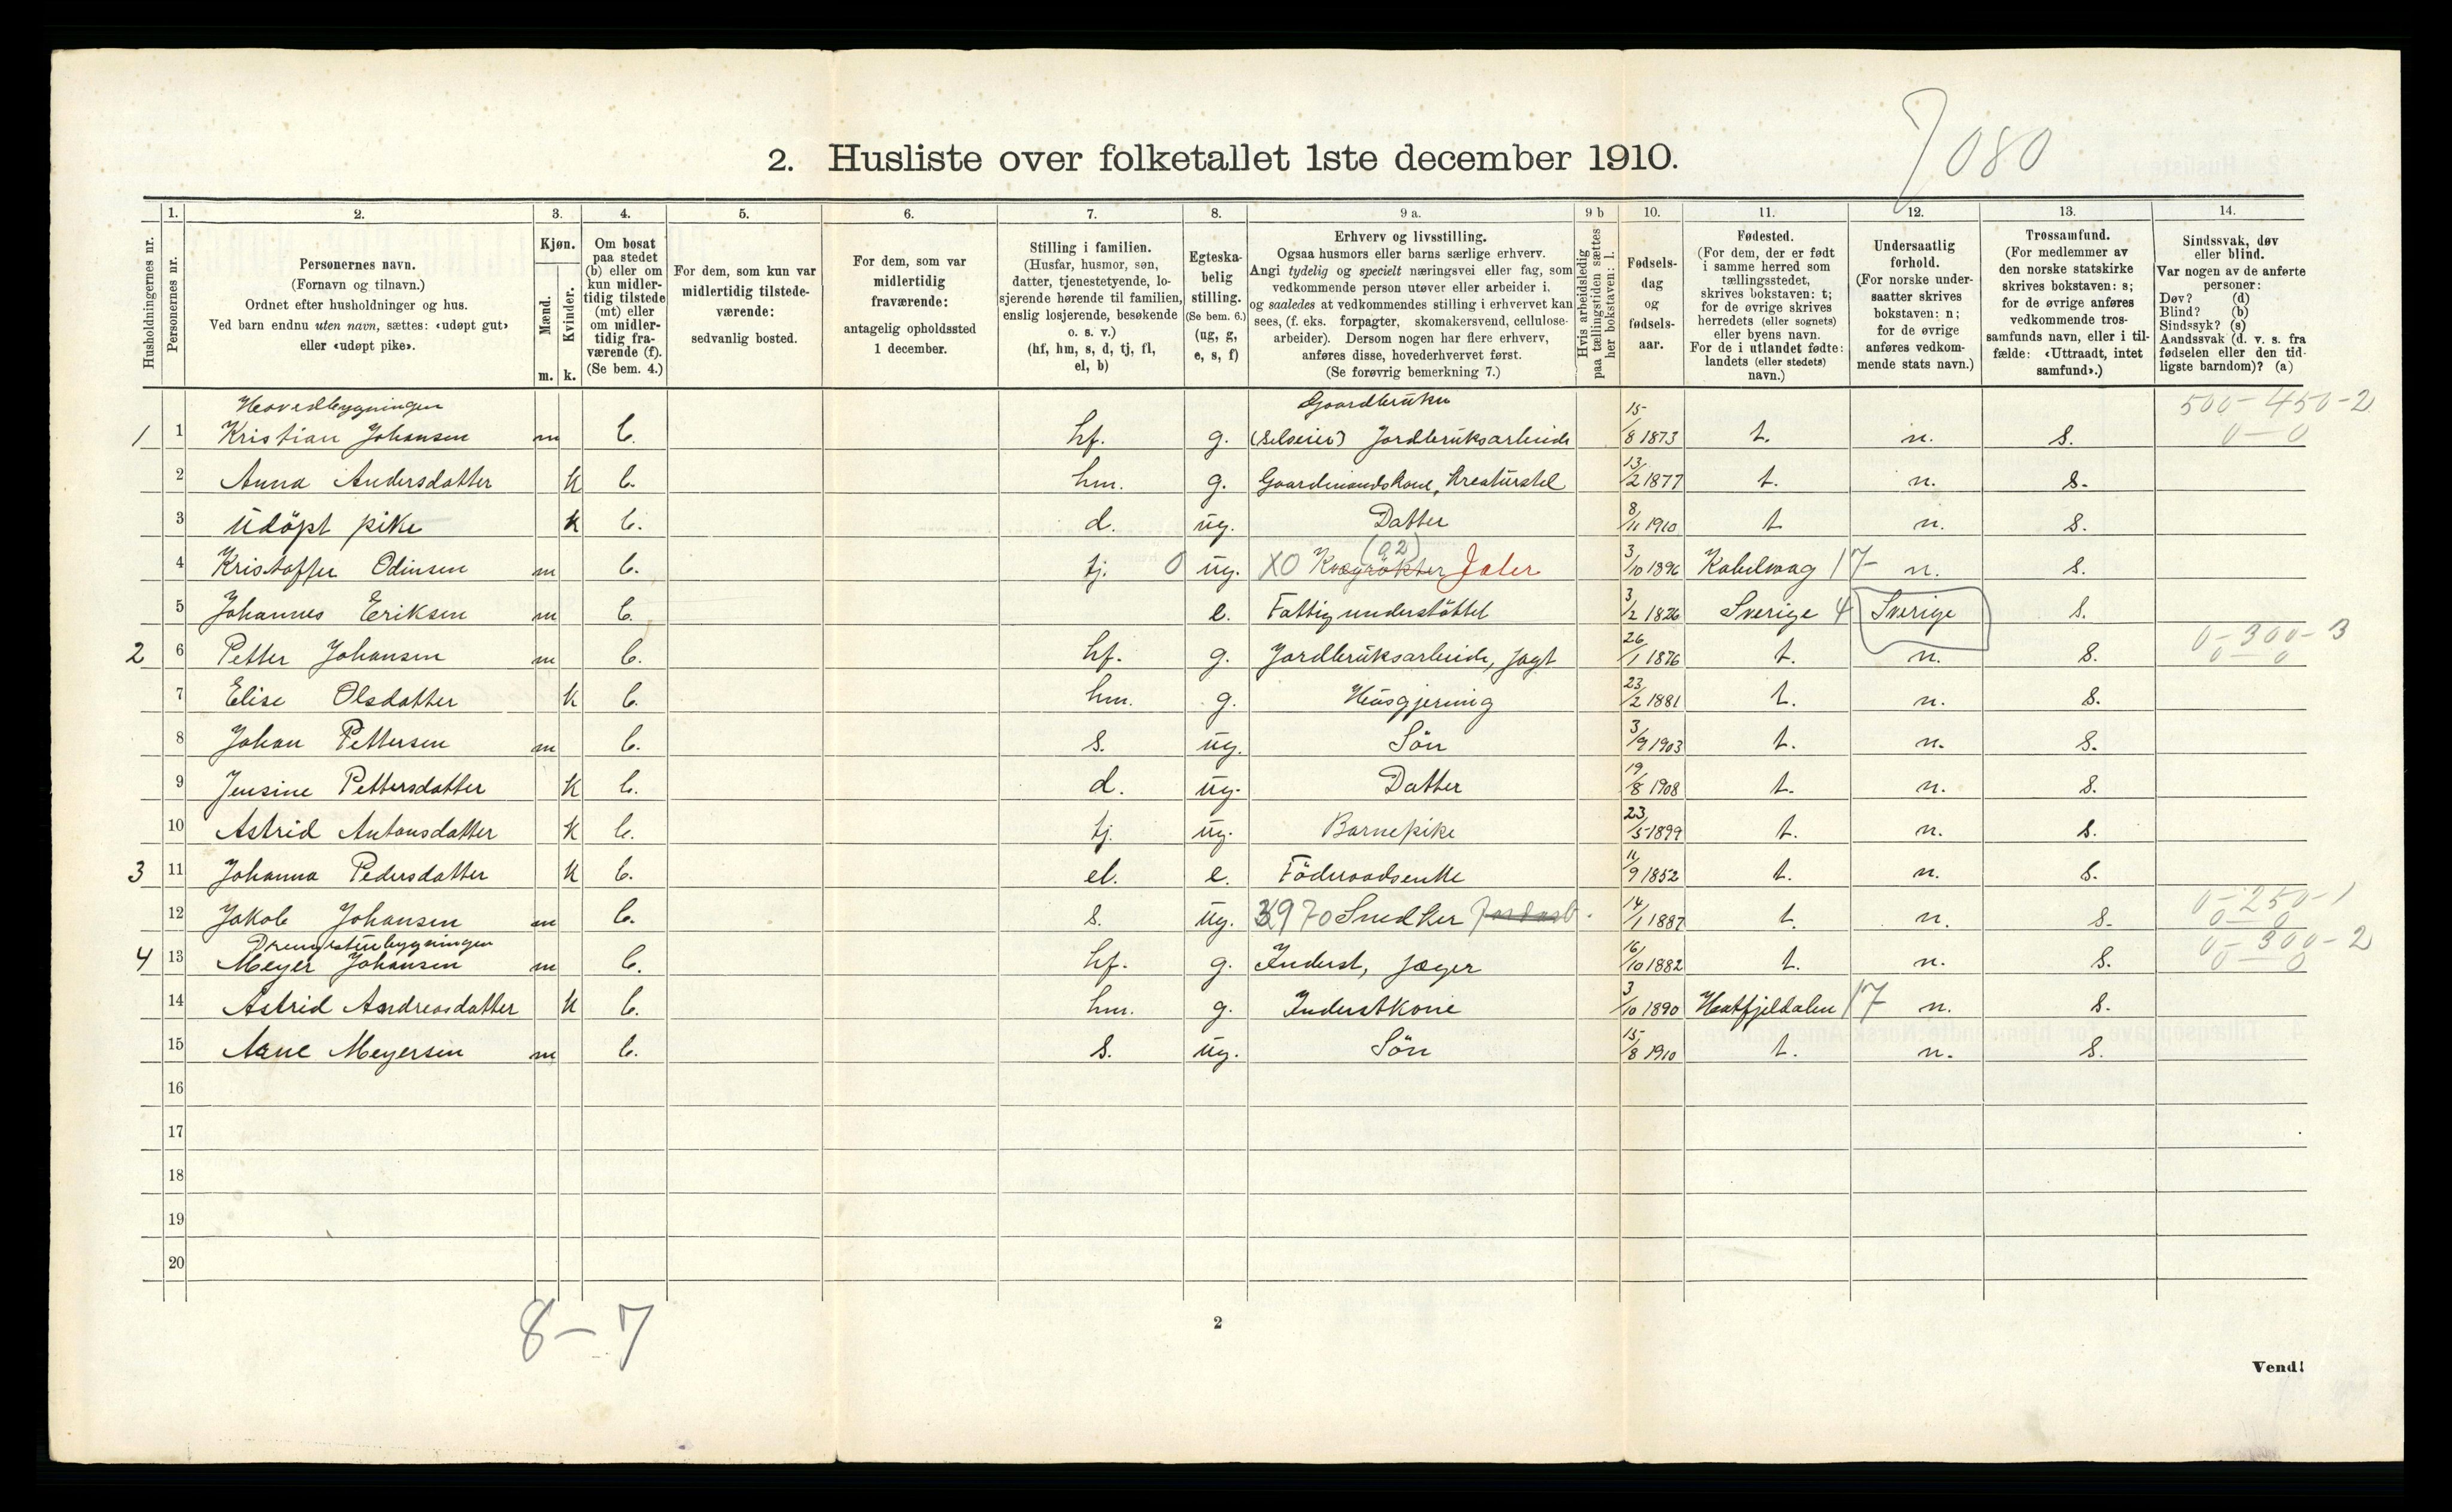 7080
2. Husliste over folketallet 1ste december 1910.
Husholdningernes nr.
1.
Personernes nr.
2.
Personernes navn.
(Fornavn og tilnavn.)
Ordnet efter husholdninger og hus.
Ved barn endnu uten navn, sættes: «udøpt gut»
eller «udøpt pike».
3.
Kjøn.
Mænd.
Kvinder.
m. k.
4.
Om bosat
paa stedet
(b) eller om
kun midler-
tidig tilstede
(mt) eller
om midler-
tidig fra-
værende (f).
(Se bem. 4.)
5.
For dem, som kun var
midlertidig tilstede-
værende:
sedvanlig bosted.
6.
For dem, som var
midlertidig
fraværende:
antagelig opholdssted
1 december.
7.
Stilling i familien.
(Husfar, husmor, søn,
datter, tjenestetyende, lo-
sjerende hørende til familien,
enslig losjerende, besøkende
o. s. v.)
(hf, hm, s, d, tj, fl,
el, b)
8.
Egteska-
belig
stilling.
(Se bem. 6.)
(ug, g,
e, s, f)
9 a.
Erhverv og livsstilling.
Ogsaa husmors eller barns særlige erhverv.
Angi tydelig og specielt næringsvei eller fag, som
vedkommende person utøver eller arbeider i.
og saaledes at vedkommendes stilling i erhvervet kan
sees, (f. eks. forpagter, skomakersvend, cellulose-
arbeider). Dersom nogen har flere erhverv,
anføres disse, hovederhvervet først.
(Se forøvrig bemerkning 7.)
9 b
Hvis arbeidsledig
paa tællingstiden sættes
her bokstaven: l.
10.
Fødsels-
dag
og
fødsels-
aar.
11.
Fødested.
(For dem, der er født
i samme herred som
tællingsstedet,
skrives bokstaven: t;
for de øvrige skrives
herredets (eller sognets)
eller byens navn.
For de i utlandet fødte:
landets (eller stedets)
navn.)
12.
Undersaatlig
forhold.
(For norske under-
saatter skrives
bokstaven: n;
for de øvrige
anføres vedkom-
mende stats navn.)
13.
Trossamfund.
(For medlemmer av
den norske statskirke
skrives bokstaven: s;
for de øvrige anføres
vedkommende tros-
samfunds navn, eller i til-
fælde: «Uttraadt, intet
samfund».)
14.
Sindssvak, døv
eller blind.
Var nogen av de anførte
personer:
Døv? (d)
Blind? (b)
Sindssyk? (s)
Aandssvak (d. v. s. fra
fødselen eller den tid-
ligste barndom)? (a)
Hovedbygningen Gaardbruker 500-450-2
1 1 Kristian Johansen m b. hf. g. (Selveier) Jordbruksarbeide 15/8 1873 t. n. S. 0—0
2 Anna Andersdatter k b. hm. g. Gaardmandskone, Kreaturstel 13/2 1877 t. n. S.
3 Udöpt pike k b. d. ug. Datter 8/11 1910 t n. S.
4 Kristoffer Odinsen m b. tj. 0 ug. XO Kvægrökter (a2) Jater 3/10 1896 Kabelvaag 17 n. S.
5 Johannes Eriksen m b. e. Fattigunderstöttet 3/2 1826 Sverige 4 Sverige S.
2 6 Petter Johansen m b. hf. g. Jordbruksarbeide, jagt 26/1 1876 t. n. S. 0-300-3 0—0
7 Elise Olsdatter k b. hm. g. Husgjerning 23/2 1881 t. n. S.
8 Johan Pettersen m b. S. ug. Sön 3/9 1903 t. n. S.
9 Jensine Pettersdatter k b. d. ug. Datter 19/8 1908 t. n. S.
10 Astrid Antonsdatter k b. tj. ug. Barnepike 23/5 1899 t. n. S.
3 11 Johanna Pedersdatter k b. el. e. Föderaadsenke 11/9 1852 t. n. S.
12 Jakob Johansen m b. s. ug. 3970 Snedker Jordarb. 14/1 1887 t. n. S. 0-250-1 0—0
Drengestubygningen
4 13 Meyer Johansen m b. hf. g. Inderst, jæger 16/10 1882 t. n. S. 0-300-2 0—0
14 Astrid Andreasdatter k b. hm. g. Inderstkone 3/10 1890 Hatfjeldalen 17 n. S.
15 Arne Meyersen m b. S. ug. Sön 15/8 1910 t. n. S.
16
17
18
19
20
8-7
2
Vend!